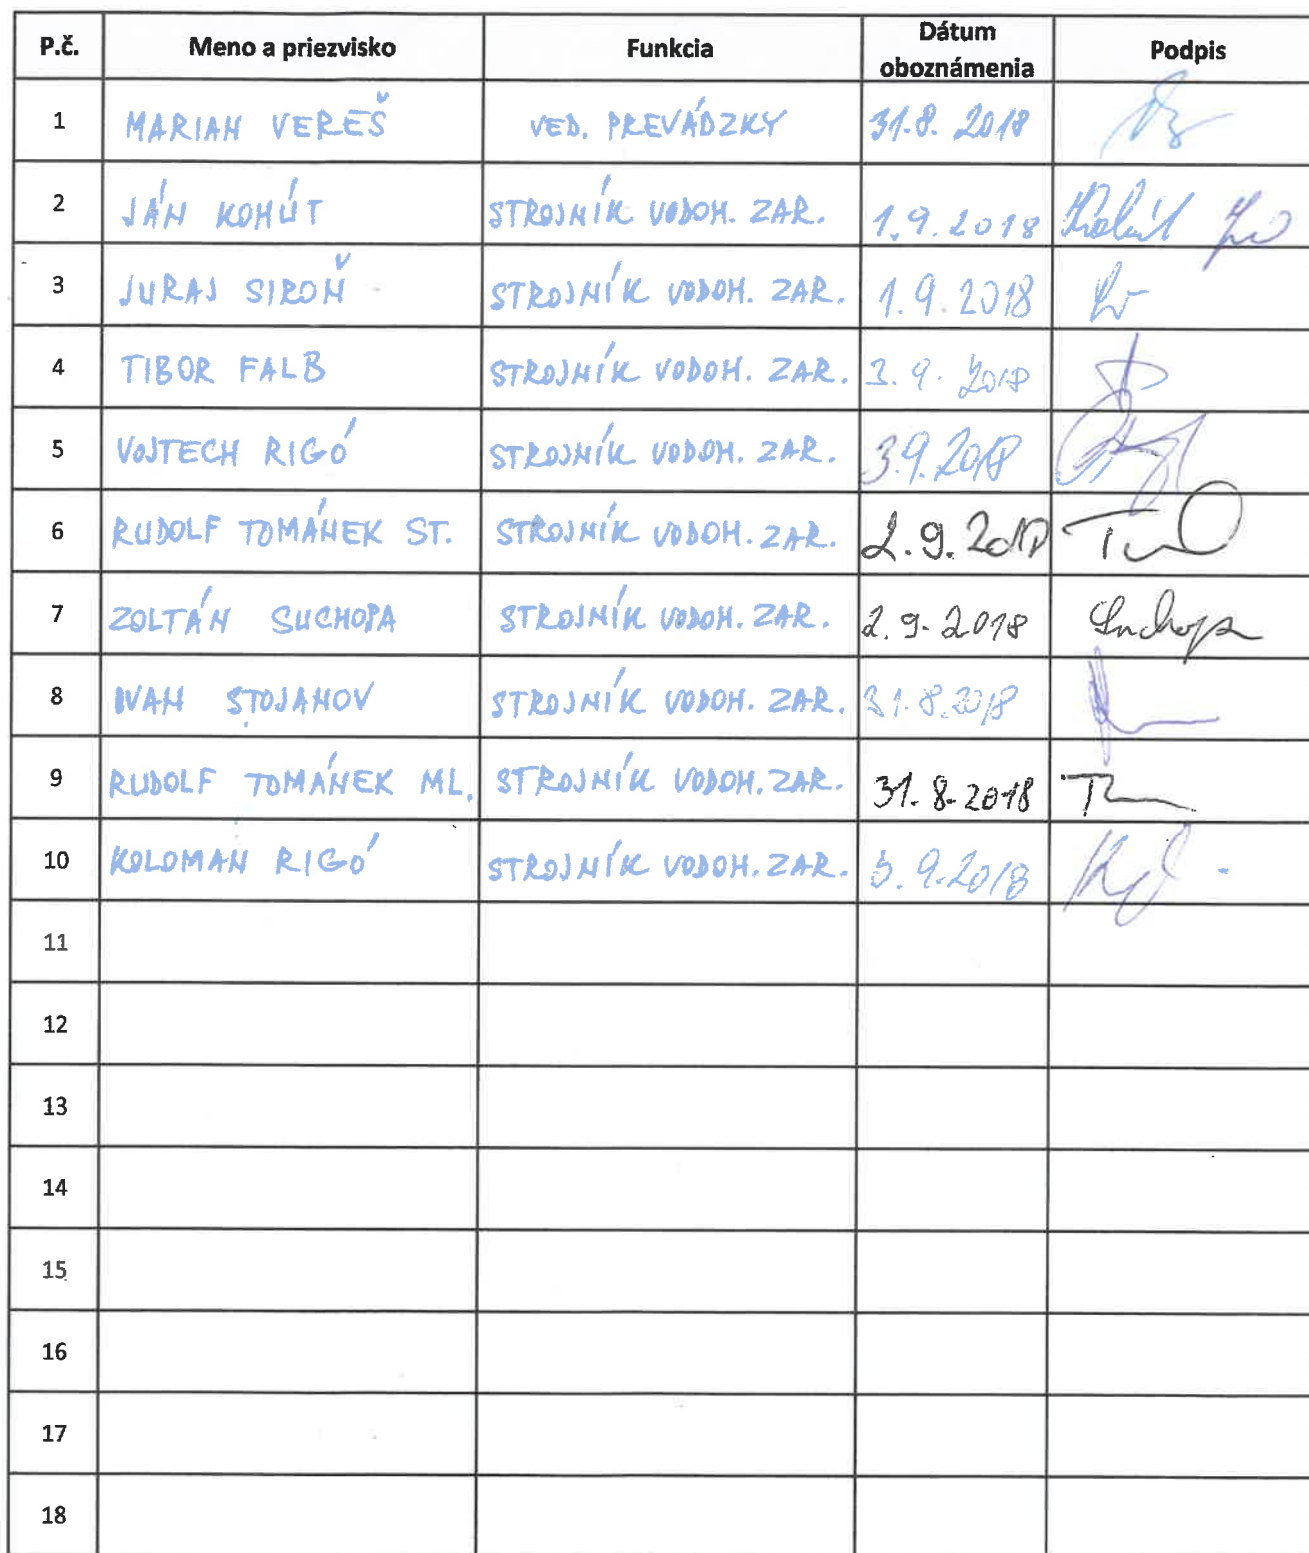 P.č. Meno a priezvisko Funkcia Dátum oboznámenia Podpis
1 MARIAN VEREŠ VED. PREVÁDZKY 31.8. 2018
2 JÁN KOHÚT STROJNÍK VODOH. ZAR. 1.9.2018 Kohút
3 JURAJ SIROŇ STROJNÍK VODOH. ZAR. 1.9.2018
4 TIBOR FALB STROJNÍK VODOH. ZAR. 3.9.2018
5 VOJTECH RIGÓ STROJNÍK VODOH. ZAR. 3.9.2018
6 RUDOLF TOMÁNEK ST. STROJNÍK VODOH. ZAR. 2.9.2018
7 ZOLTÁN SUCHOPA STROJNÍK VODOH. ZAR. 2.9.2018 Suchopa
8 IVAN STOJANOV STROJNÍK VODOH. ZAR. 31.8.2018
9 RUDOLF TOMÁNEK ML. STROJNÍK VODOH. ZAR. 31.8.2018
10 KOLOMAN RIGÓ STROJNÍK VODOH. ZAR. 3.9.2018
11
12
13
14
15
16
17
18